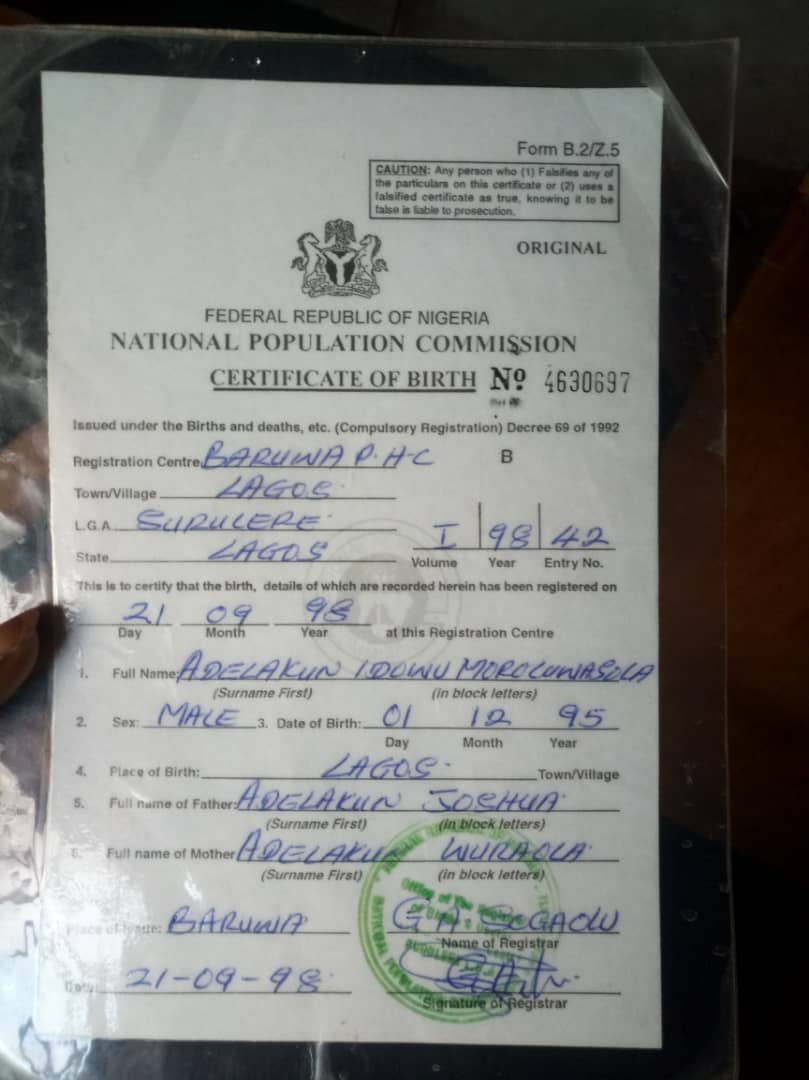 Form B.2/Z.5
CAUTION: Any person who (1) Falsifies any of
the particulars on this certificate or (2) uses a
falsified certificate as true, knowing it to be
false is liable to prosecution.
ORIGINAL
FEDERAL REPUBLIC OF NIGERIA
NATIONAL POPULATION COMMISSION
CERTIFICATE OF BIRTH Nº 4630697
Issued under the Births and deaths, etc. (Compulsory Registration) Decree 69 of 1992
Registration Centre BARUWA P.H.C B
Town/Village LAGOS
L.G.A. SURULERE I 98 42
State LAGOS Volume Year Entry No.
This is to certify that the birth, details of which are recorded herein has been registered on
21 09 98
Day Month Year at this Registration Centre
1. Full Name: ADELAKUN IDOWU MOROLUWASOLA
(Surname First) (in block letters)
2. Sex: MALE 3. Date of Birth: 01 12 95
Day Month Year
4. Place of Birth: LAGOS Town/Village
5. Full name of Father: ADELAKUN JOSHUA
(Surname First) (in block letters)
6. Full name of Mother ADELAKUN WURAOLA
(Surname First) (in block letters)
Place of Issue: BARUWA G.A.
Name of Registrar
Date: 21-09-98
Signature of Registrar